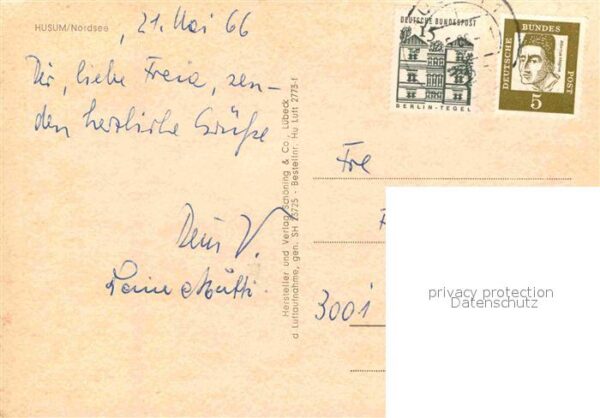 HUSUM/Nordsee
21. Mai 66
Dir, liebe Freia, sen-
den herzliche Grüße
Dein V.
Deine Mutti
Hersteller und Verlag Schöning & Co., Lübeck
d. Luftaufnahme, gen. SH 25/25 - Bestellnr. Hu Luft 2773-f
DEUTSCHE BUNDESPOST
15
BERLIN-TEGEL
DEUTSCHE BUNDESPOST
5
Fre
3001
privacy protection
Datenschutz